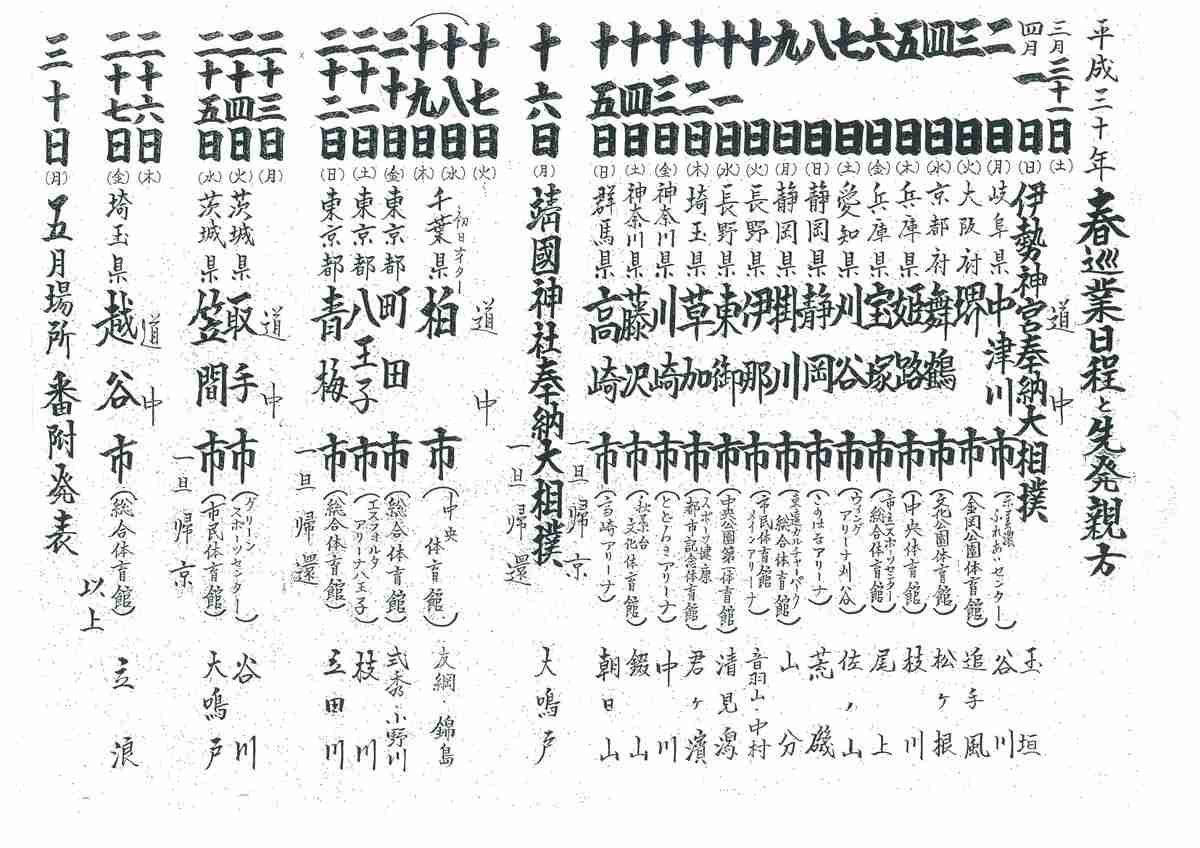 平成三十年 春巡業日程と先発親方
三月三十一日(土) 道中
四月一日(日) 伊勢神宮奉納大相撲 玉垣
二日(月) 岐阜県 中津川市 (東美濃ふれあいセンター) 谷川
三日(火) 大阪府 堺市 (金岡公園体育館) 追手風
四日(水) 京都府 舞鶴市 (文化公園体育館) 松ヶ根
五日(木) 兵庫県 姫路市 (中央体育館) 枝川
六日(金) 兵庫県 宝塚市 (市立スポーツセンター総合体育館) 尾上
七日(土) 愛知県 刈谷市 (ウィングアリーナ刈谷) 佐ノ山
八日(日) 静岡県 静岡市 (このはなアリーナ) 荒磯
九日(月) 静岡県 掛川市 (東遠カルチャーパーク総合体育館) 山分
十日(火) 長野県 伊那市 (市民体育館メインアリーナ) 音羽山・中村
十一日(水) 長野県 東御市 (中央公園第一体育館) 清見潟
十二日(木) 埼玉県 草加市 (スポーツ健康都市記念体育館) 君ヶ濱
十三日(金) 神奈川県 川崎市 (とどろきアリーナ) 中川
十四日(土) 神奈川県 藤沢市 (秋葉台文化体育館) 錣山
十五日(日) 群馬県 高崎市 (高崎アリーナ) 朝日山
一旦帰京
十六日(月) 靖國神社奉納大相撲 大鳴戸
一旦帰還
十七日(火) 道中
十八日(水) 千葉県 柏市 (中央体育館) 友綱・錦島
十九日(木) 初日ナイター
二十日(金) 東京都 町田市 (総合体育館) 式秀・小野川
二十一日(土) 東京都 八王子市 (エスフォルタアリーナ八王子) 枝川
二十二日(日) 東京都 青梅市 (総合体育館) 立田川
一旦帰還
二十三日(月) 道中
二十四日(火) 茨城県 取手市 (グリーンスポーツセンター) 谷川
二十五日(水) 茨城県 笠間市 (市民体育館) 大鳴戸
一旦帰京
二十六日(木) 道中
二十七日(金) 埼玉県 越谷市 (総合体育館) 立浪
以上
三十日(月) 五月場所番附発表